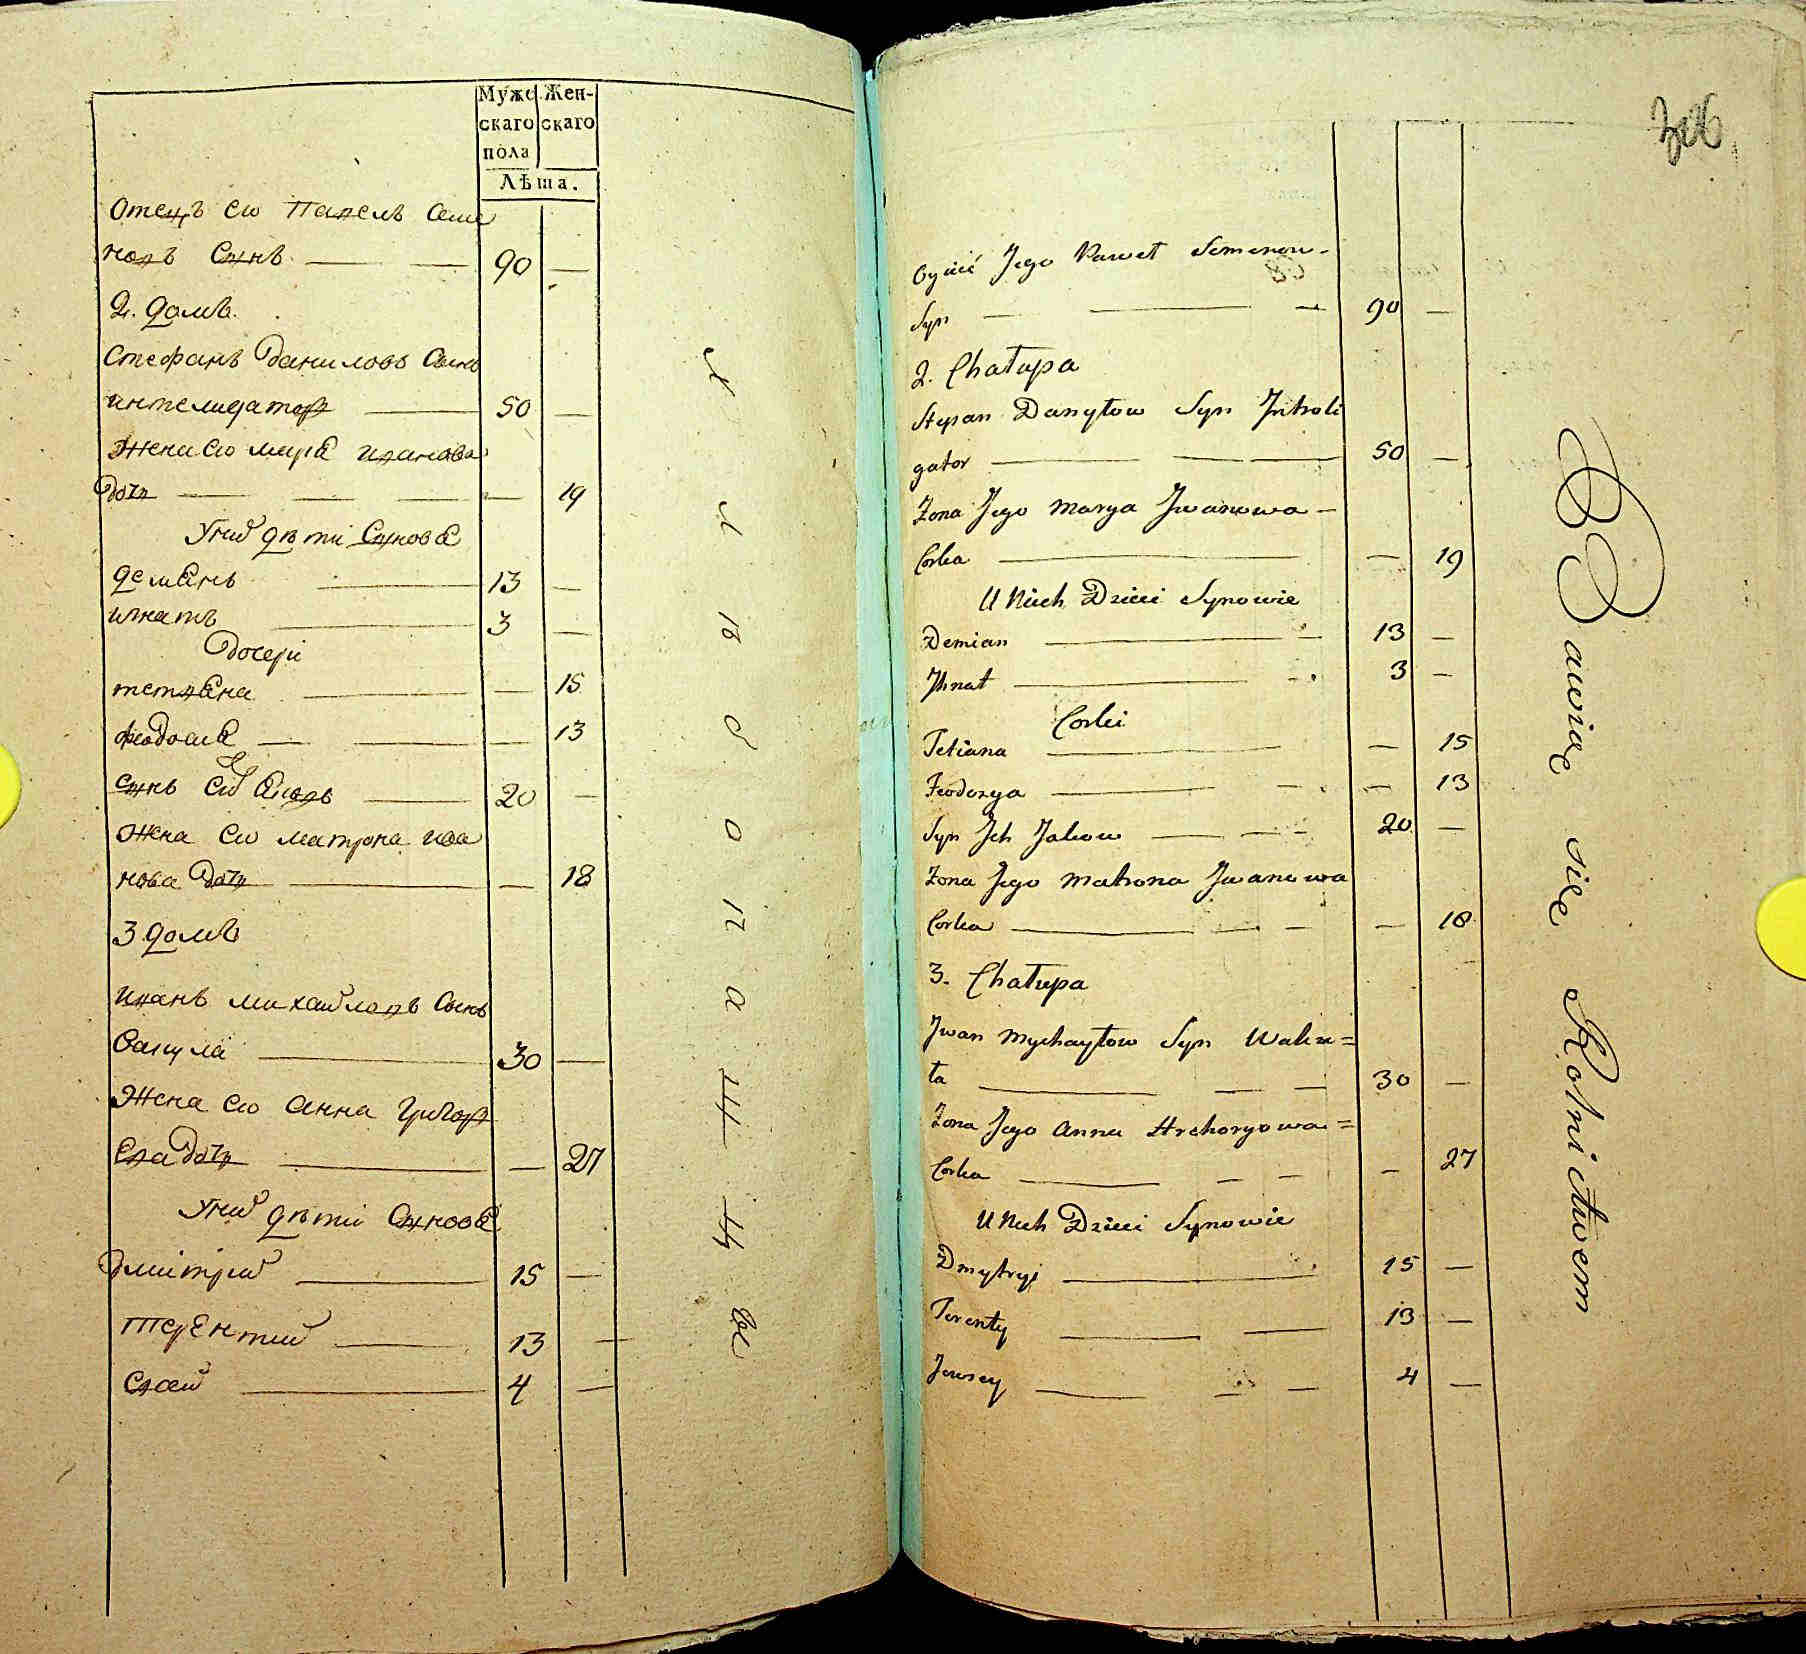 Мужс Жен-
скаго скаго
пола
Лѣта.
Отецъ его Павелъ Семе
новъ Сынъ 90 —
2. домъ.
Стефанъ даниловъ Сынъ
интелигаторъ 50 —
Жена его мария иванова
дочь — 19
У них дѣти Сыновѣ
демѣнъ 13 —
игнатъ 3 —
дочери
тетѣна — 15
феодосиѣ — 13
сынъ их Яковъ 20 —
Жена его матрона ива
нова дочь — 18
3 домъ
иванъ михайловъ Сынъ
Вакула 30 —
Жена его Анна григор
ева дочь — 27
У них дѣти Сыновѣ
дмитрий 15 —
терентий 13 —
евсей 4 —
хлѣбопашцы
306
Oyciec Jego Paweł Semenow-
Syn 90 —
2. Chałupa
Stepan Danyłow Syn Introli
gator 50 —
Zona Jego Marya Jwanowa —
Corka — 19
U Nich Dzieci Synowie
Demian 13 —
Jhnat 3 —
Corki
Tetiana — 15
Feodozya — 13
Syn Jch Jakow 20 —
Zona Jego Matrona Jwanowa
Corka — 18
3. Chałupa
Jwan Mychayłow Syn Waku=
ła 30 —
Zona Jego Anna Hrehoryowa=
Corka — 27
U Nich Dzieci Synowie
Dmytryi 15 —
Terenty 13 —
Jewsey 4 —
Bawią się Rolnictwem